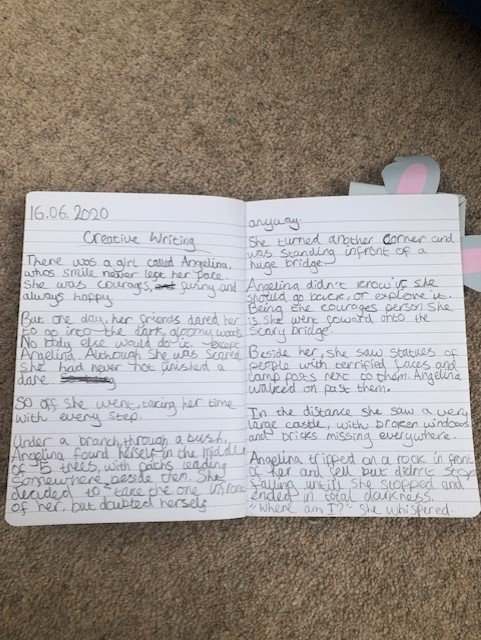 16.06.2020
Creative Writing
There was a girl called Angelina,
whos smile never left her face.
She was courages, funny and
always happy.
But one day, her friends dared her
to go into the dark, gloomy woods.
No body else would do it except
Angelina. Although she was scared
she had never not finished a
dare.
So off she went, taking her time
with every step.
Under a branch, through a bush,
Angelina found herself in the middle
of 5 trees, with paths leading
somewhere, beside them. She
decided to take the one infront
of her, but doubted herself
anyway.
She turned another corner and
was standing infront of a
huge bridge.
Angelina didn't know if she
should go back, or explore it.
Being the courages person she
is she went toward onto the
scary bridge.
Beside her, she saw statues of
people with terrified faces and
lamp posts next to them. Angelina
walked on past them.
In the distance she saw a very
large castle, with broken windows
and bricks missing everywhere.
Angelina tripped on a rock in front
of her and fell but didn't stop
falling untill she stopped and
ended in total darkness.
"Where am I?" She whispered.